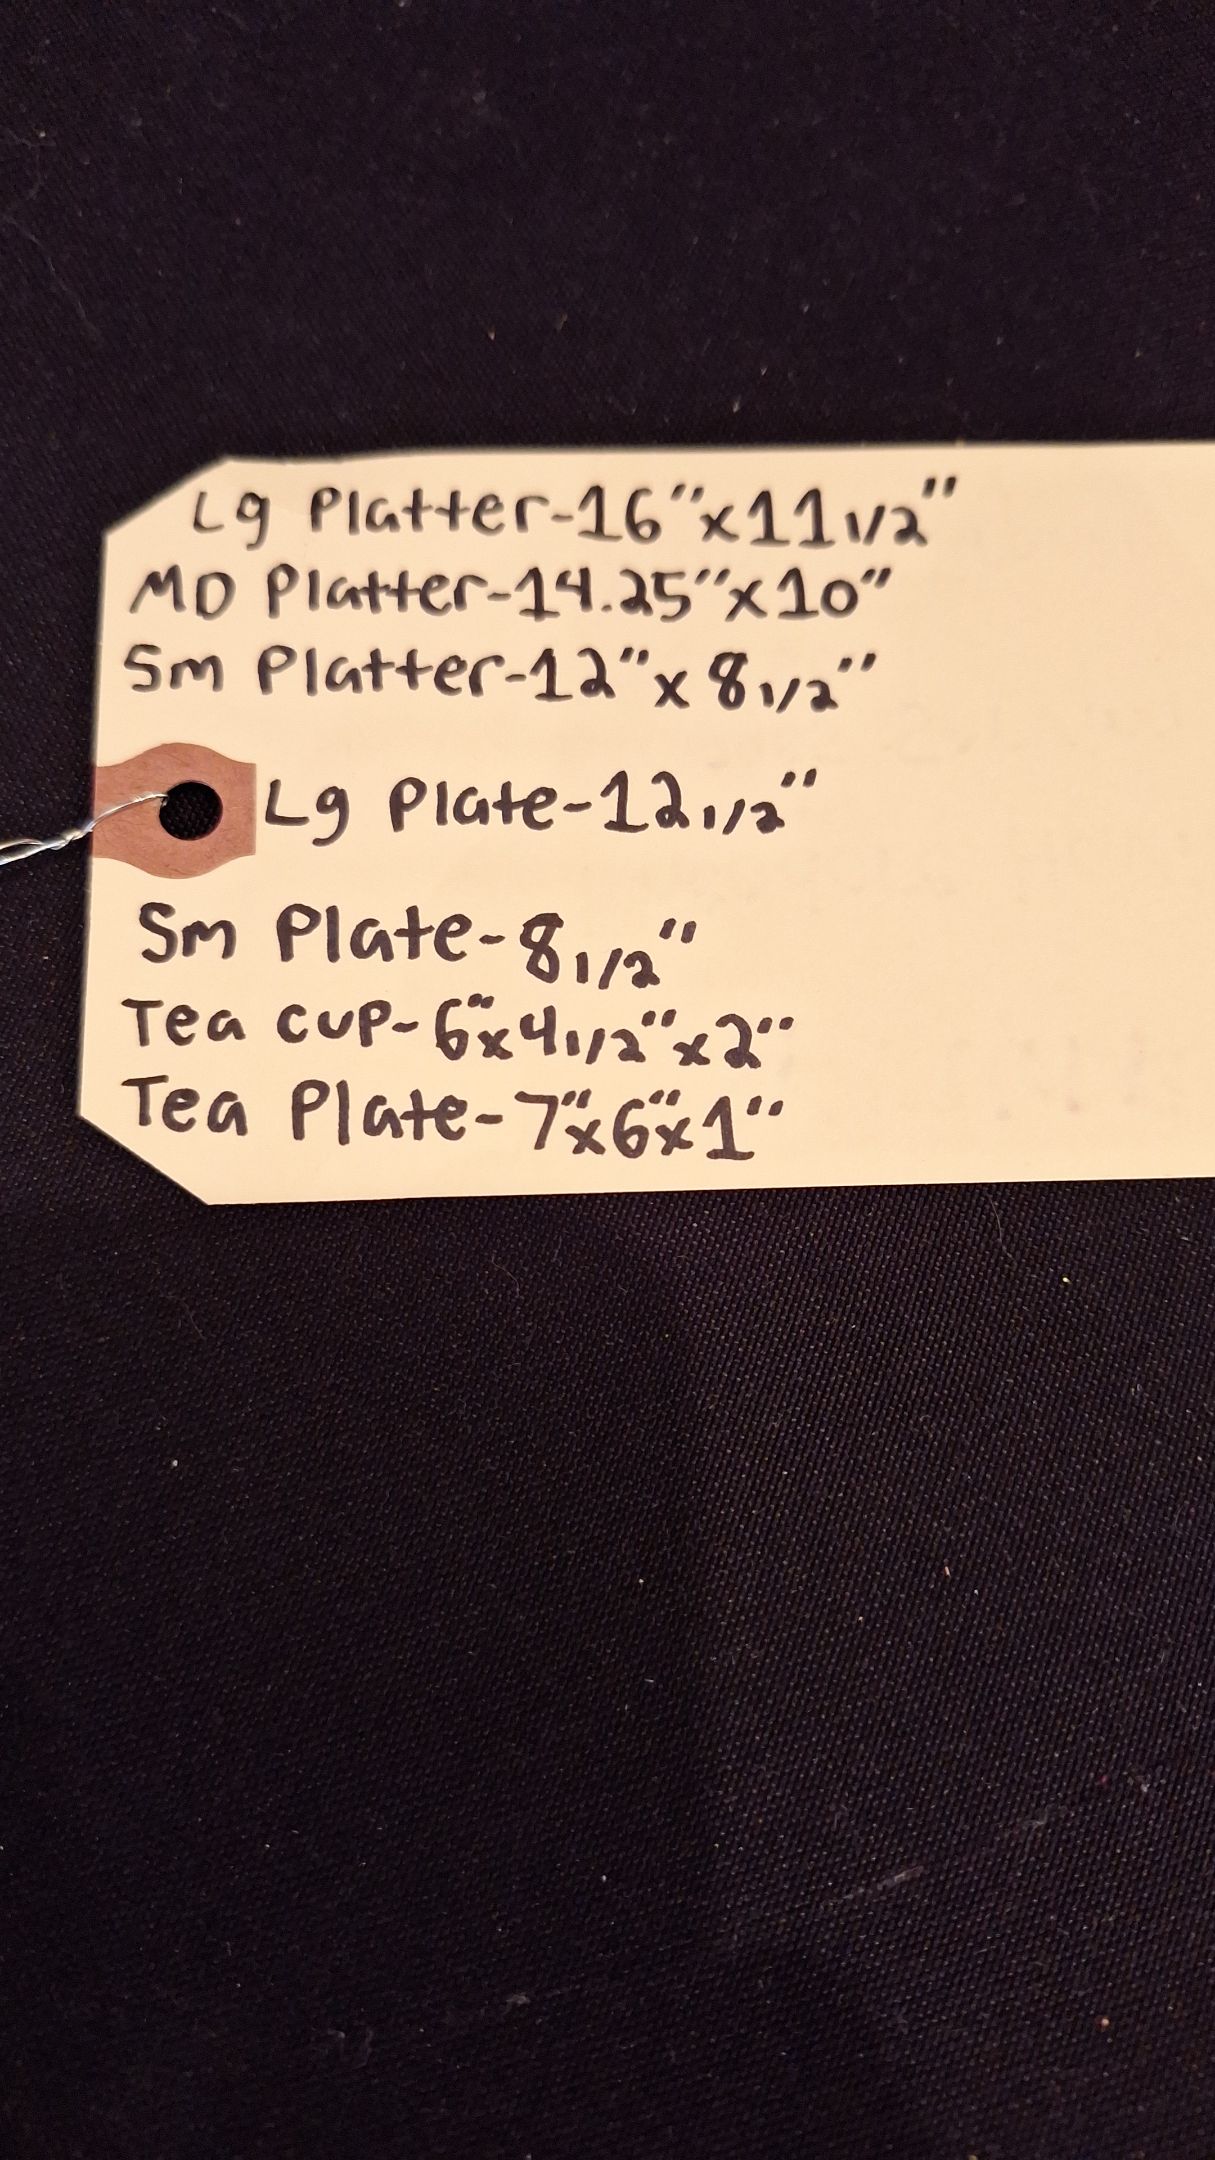 Lg Platter-16"x11 1/2"
MD Platter-14.25"x10"
Sm Platter-12"x 8 1/2"
Lg Plate-12 1/2"
Sm Plate-8 1/2"
Tea cup-6"x4 1/2"x2"
Tea Plate-7"x6"x1"